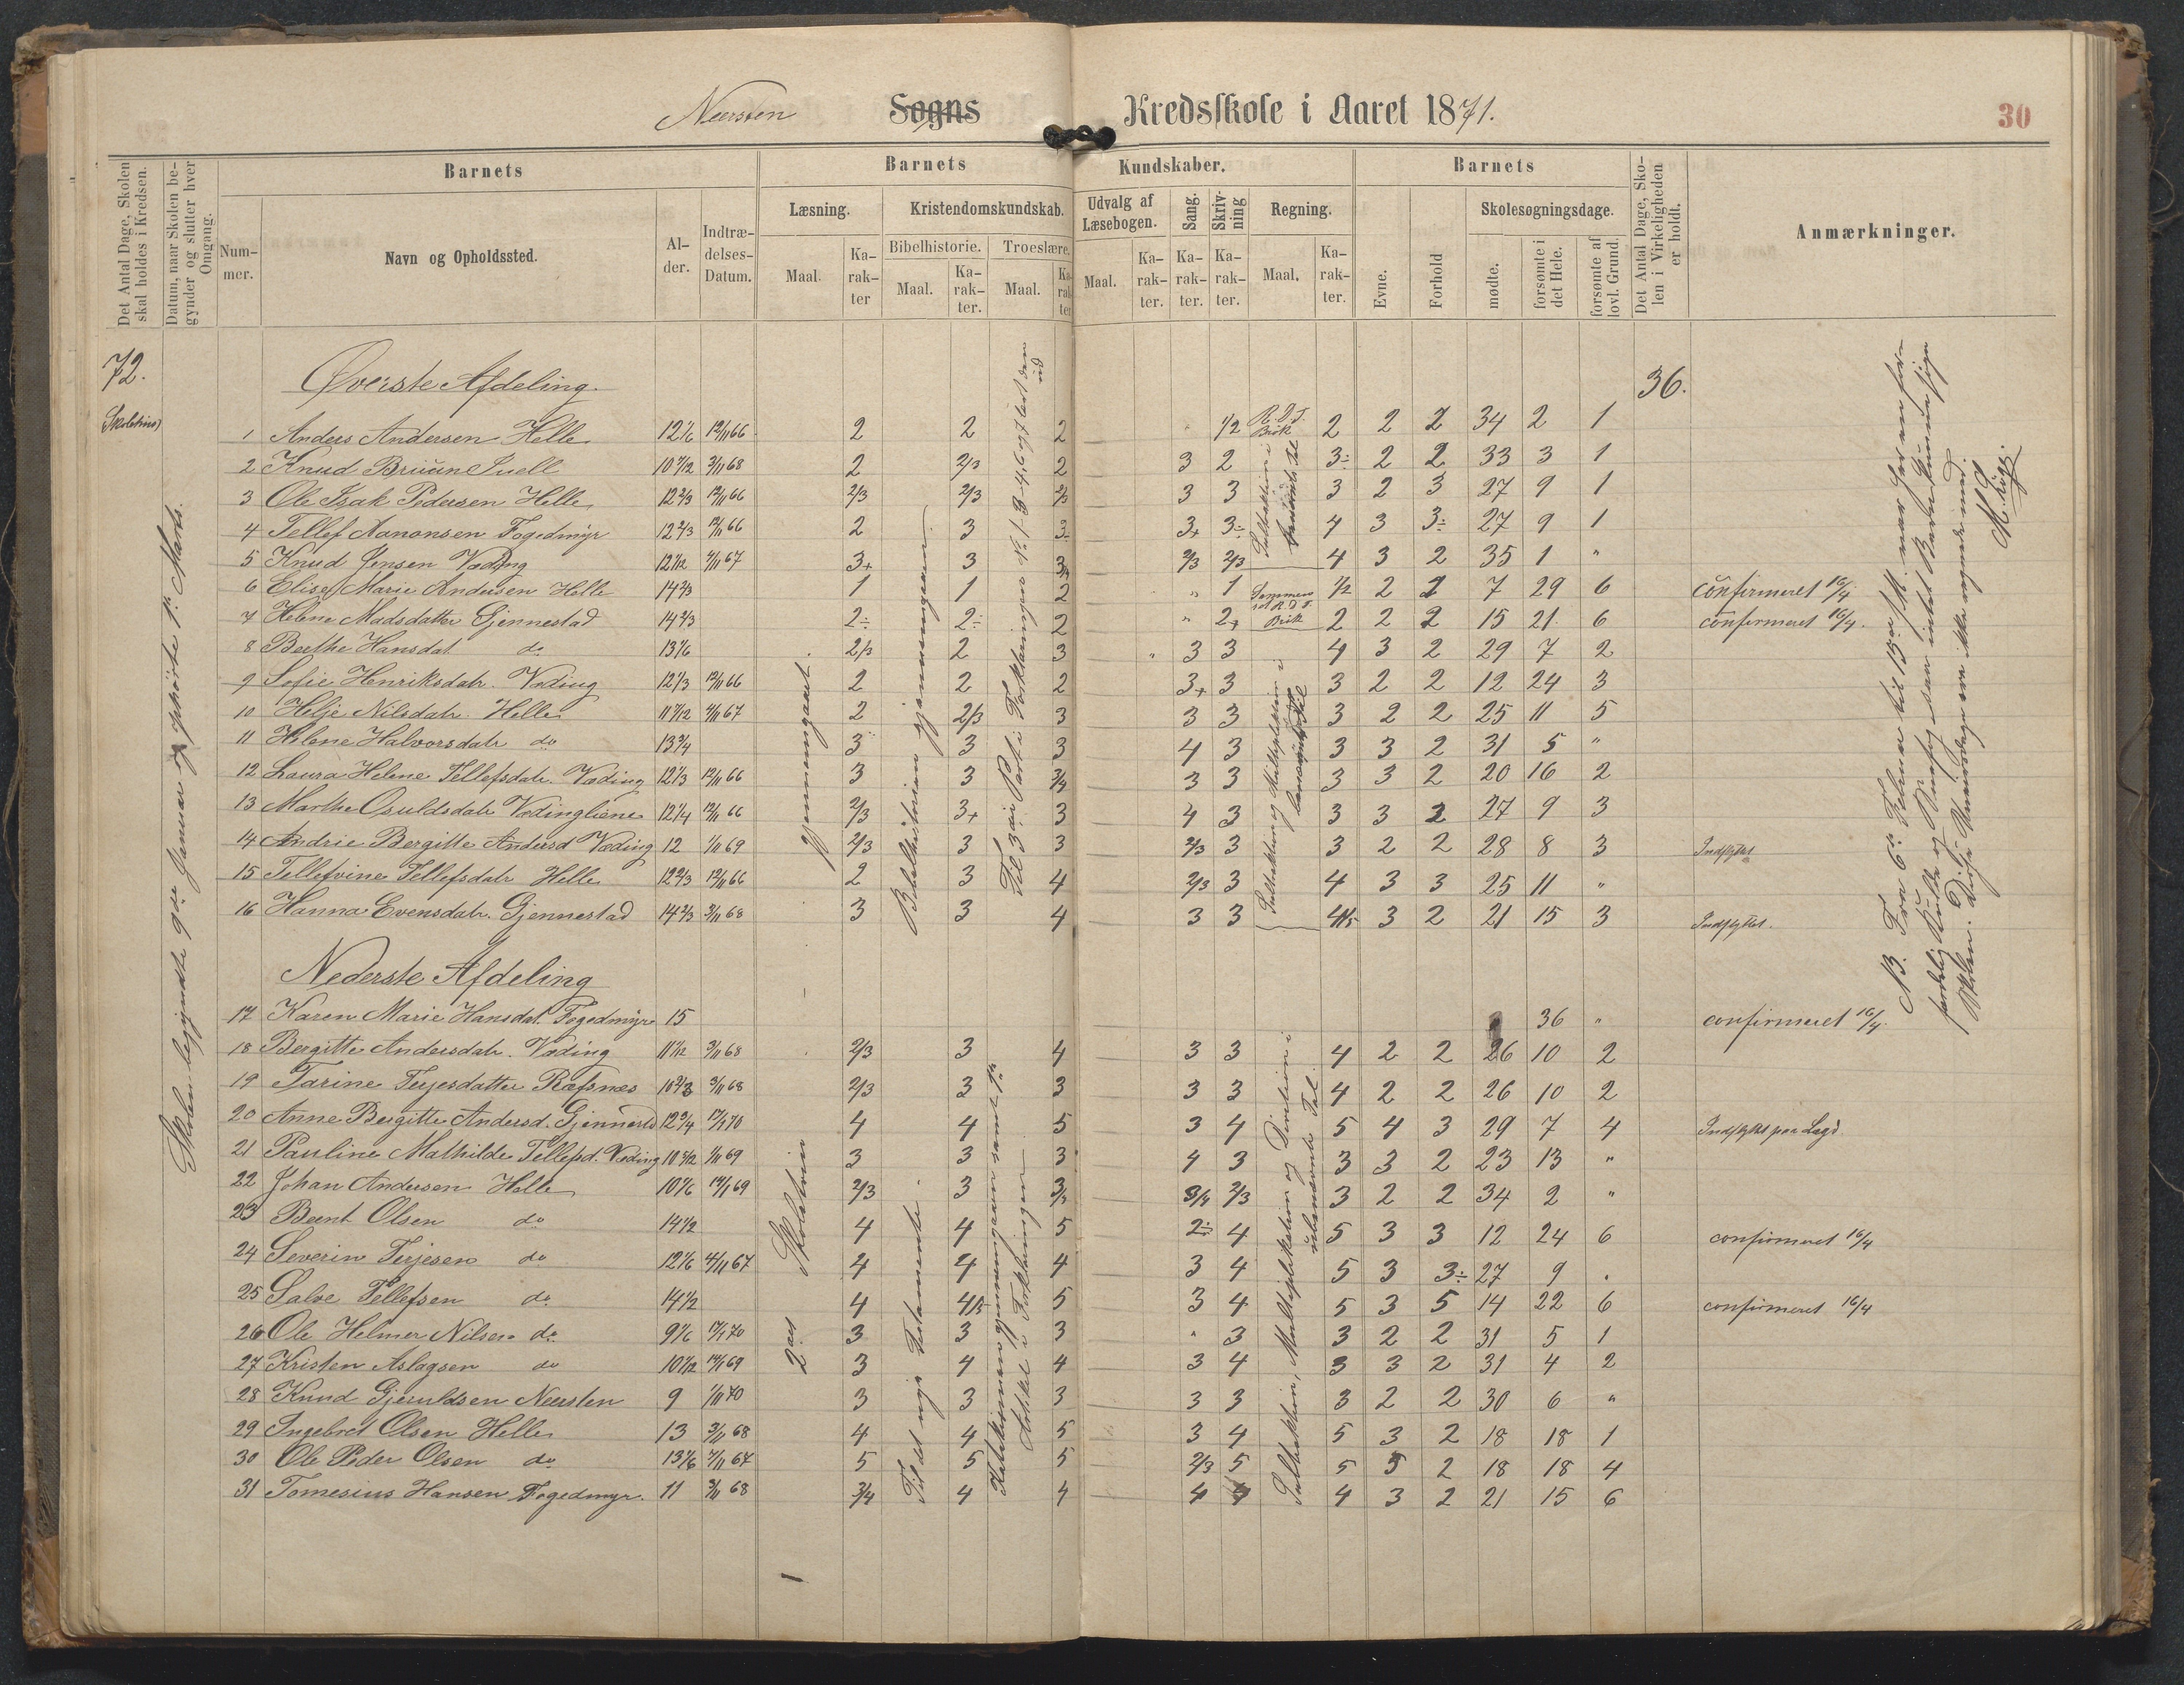 Neersten Sogns Kredsskole i Aaret 1871.
30
Det Antal Dage, Skolen skal holdes i Kredsen.
Datum, naar Skolen begynder og slutter hver Omgang.
Barnets
Nummer.
Navn og Opholdssted.
Alder.
Indtrædelses-Datum.
Barnets Kundskaber.
Læsning.
Maal.
Karakter
Kristendomskundskab.
Bibelhistorie.
Maal.
Karakter.
Troeslære.
Maal.
Karakter
Udvalg af Læsebogen.
Maal.
Karakter.
Sang.
Karakter.
Skrivning
Karakter.
Regning.
Maal.
Karakter.
Barnets
Evne.
Forhold
Skolesøgningsdage.
mødte.
forsømte i det Hele.
forsømte af lovl. Grund.
Det Antal Dage, Skolen i Virkeligheden er holdt.
Anmærkninger.
72.
Øverste Afdeling.
36.
1 Anders Andersen Helle 12 1/6 12/11 66 2 2 2 1/2 2 2 2 34 2 1
2 Knud Bruune Juell 10 7/12 3/11 68 2 2/3 2 3 2 3÷ 2 2 33 3 1
3 Ole Isak Pedersen Helle 12 2/3 12/11 66 2/3 2/3 2/3 3 3 3 2 3 27 9 1
4 Tellef Aanonsen Fogedmyr 12 2/3 12/11 66 2 3 3÷ 3+ 3÷ 4 3 3÷ 27 9 1
5 Knud Jensen Væding 12 1/12 4/11 67 3+ 3 3/4 2/3 2/3 4 3 2 35 1 "
6 Elise Marie Andersen Helle 14 2/3 1 1 2 " 1 1/2 2 2 7 29 6 confirmeret 16/4
7 Helene Madsdatter Gjennestad 14 2/3 2÷ 2÷ 2 " 2+ 2 2 2 15 21 6 confirmeret 16/4.
8 Berthe Hansdat. do 13 1/6 2/3 2 3 3 3 4 3 2 29 7 2
9 Sofie Henriksdatr. Væding 12 1/3 12/11 66 2 2 2 3+ 3 3 2 2 12 24 3
10 Helje Nilsdatr. Helle 11 7/12 4/11 67 2 2/3 3 3 3 3 2 2 25 11 5
11 Helene Halvorsdatr do 13 3/4 3 3 3 4 3 3 3 2 31 5 "
12 Laura Helene Tellefsdatr. Væding 12 1/3 12/11 66 3 3 3/4 3 3 3 3 2 20 16 2
13 Marthe Osuldsdatr Vædingliene 12 1/4 12/11 66 2/3 3+ 3 4 3 3 3 2 27 9 3
14 Andrie Bergitte Andersd Væding 12 1/11 69 2/3 3 3 2/3 3 3 2 2 28 8 3 Indflyttet
15 Tellefine Tellefsdatr Helle 12 2/3 12/11 66 2 3 4 2/3 3 4 3 3 25 11 "
16 Hanna Evensdatr. Gjennestad 14 2/3 3/11 68 3 3 4 3 3 4/5 3 2 21 15 3 Indflyttet.
Nederste Afdeling
17 Karen Marie Hansdat. Fogedmyr 15 36 " confirmeret 16/4.
18 Bergitte Andersdatr. Væding 11 1/12 3/11 68 2/3 3 4 3 3 4 2 2 26 10 2
19 Tarine Terjesdatter Ræfsnæs 10 2/3 3/11 68 2/3 3 3 3 3 4 2 2 26 10 2
20 Anne Bergitte Andersd. Gjennestd 12 3/4 4 4 5 3 4 5 4 3 29 7 4 Indflyttet paa Lægd
21 Pauline Mathilde Tellefsd. Væding 10 5/12 1/11 69 3 3 3 4 3 3 3 2 23 13 "
22 Johan Andersen Helle 10 1/6 2/3 3 3/4 3/4 2/3 3 2 2 34 2 "
23 Bernt Olsen do 14 1/2 4 4 5 2÷ 4 5 3 3 12 24 6 confirmeret 16/4
24 Severin Terjesen do 12 1/6 4/11 67 4 4 4 3 4 5 3 3÷ 27 9 "
25 Salve Tellefsen do 14 1/2 4 4/5 5 3 4 5 3 5 14 22 6 confirmeret 16/4
26 Ole Helmer Nilsen do 9 1/6 3 3 3 " 3 3 2 2 31 5 1
27 Kristen Aslagsen do 10 1/12 3 4 4 3 4 3 3 2 31 4 2
28 Knud Gjeruldsen Neersten 9 1/11 70 3 3 3 3 3 3 2 2 30 6 "
29 Ingebret Olsen Helle 13 3/11 68 4 4 5 3 4 5 3 2 18 18 1
30 Ole Peder Olsen do 13 1/6 4/11 67 5 5 5 2/3 5 5 3 2 18 18 4
31 Tomesius Hansen Fogedmyr. 11 3/11 68 3/4 4 4 4 4 3 2 21 15 6
Skolen begyndte 9de Januar og ophørte 1ste Marts.
gjennemgaaet.
Bibelhistorien gjennemgaaet
Til 3die Part i Forklaringen
2det Skoletrin
Til det nye Testamente.
Katekismen gjennemgaaet samt 1ste Artikel i Forklaringen
Subtraktion, Multiplikation og Division i ubenævnte Tal
Subtraktion og Multiplikation i benævnte Tal